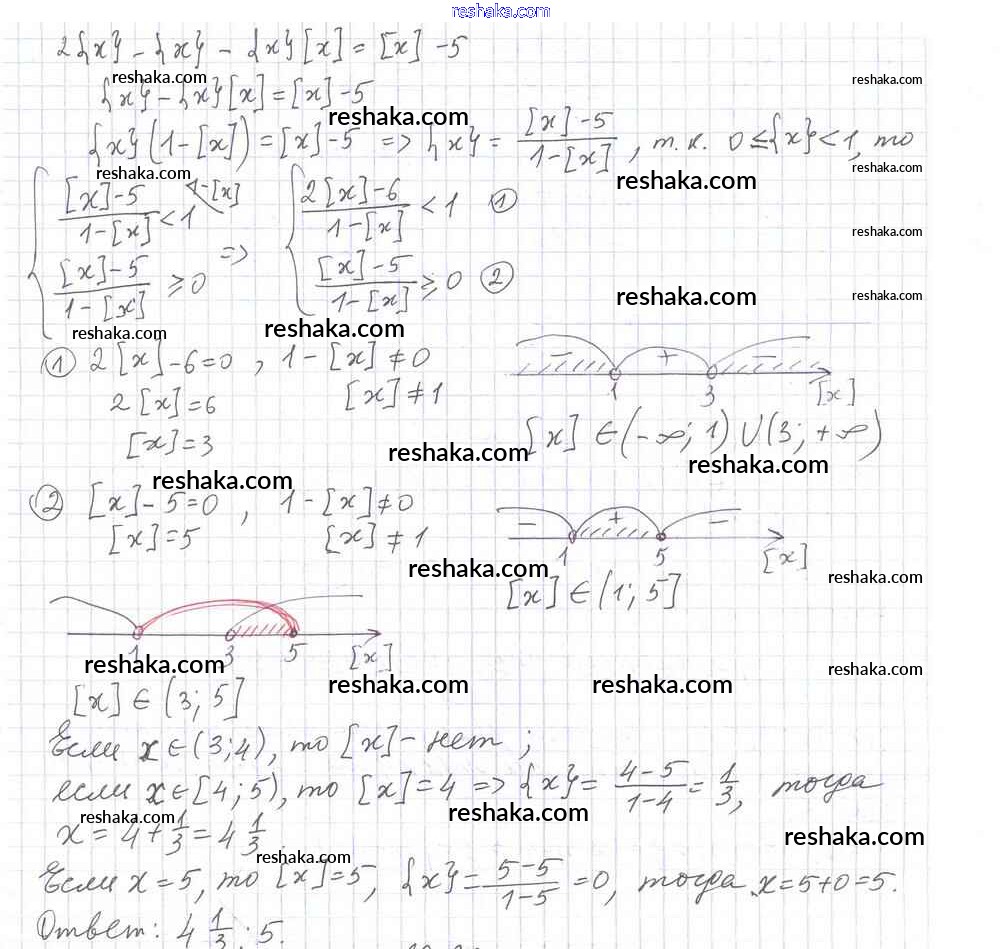 reshaka.com
2{x} - {x} - {x}[x] = [x] - 5
reshaka.com reshaka.com
{x} - {x}[x] = [x] - 5
reshaka.com
{x}(1-[x]) = [x] - 5 => {x} = ([x] - 5)/(1-[x]), т.к. 0 ≤ {x} < 1, то
reshaka.com reshaka.com reshaka.com
{ ([x] - 5)/(1-[x]) < 1 1-[x] { (2[x] - 6)/(1-[x]) < 1 ①
reshaka.com
=>
([x] - 5)/(1-[x]) ≥ 0 ([x] - 5)/(1-[x]) ≥ 0 ②
reshaka.com reshaka.com
reshaka.com reshaka.com
① 2[x] - 6 = 0, 1 - [x] ≠ 0 - + -
2[x] = 6 [x] ≠ 1 1 3 [x]
[x] = 3 [x] ∈ (-∞; 1) ∪ (3; +∞)
reshaka.com reshaka.com
reshaka.com
② [x] - 5 = 0, 1 - [x] ≠ 0 - + -
[x] = 5 [x] ≠ 1 1 5 [x]
reshaka.com reshaka.com
[x] ∈ (1; 5]
1 3 5 [x]
reshaka.com reshaka.com
reshaka.com reshaka.com
[x] ∈ (3; 5]
Если x ∈ (3; 4), то [x] - нет;
если x ∈ [4; 5), то [x] = 4 => {x} = (4-5)/(1-4) = 1/3, тогда
reshaka.com reshaka.com
x = 4 + 1/3 = 4 1/3.
reshaka.com
reshaka.com
Если x = 5, то [x] = 5, {x} = (5-5)/(1-5) = 0, тогда x = 5 + 0 = 5.
Ответ: 4 1/3; 5.